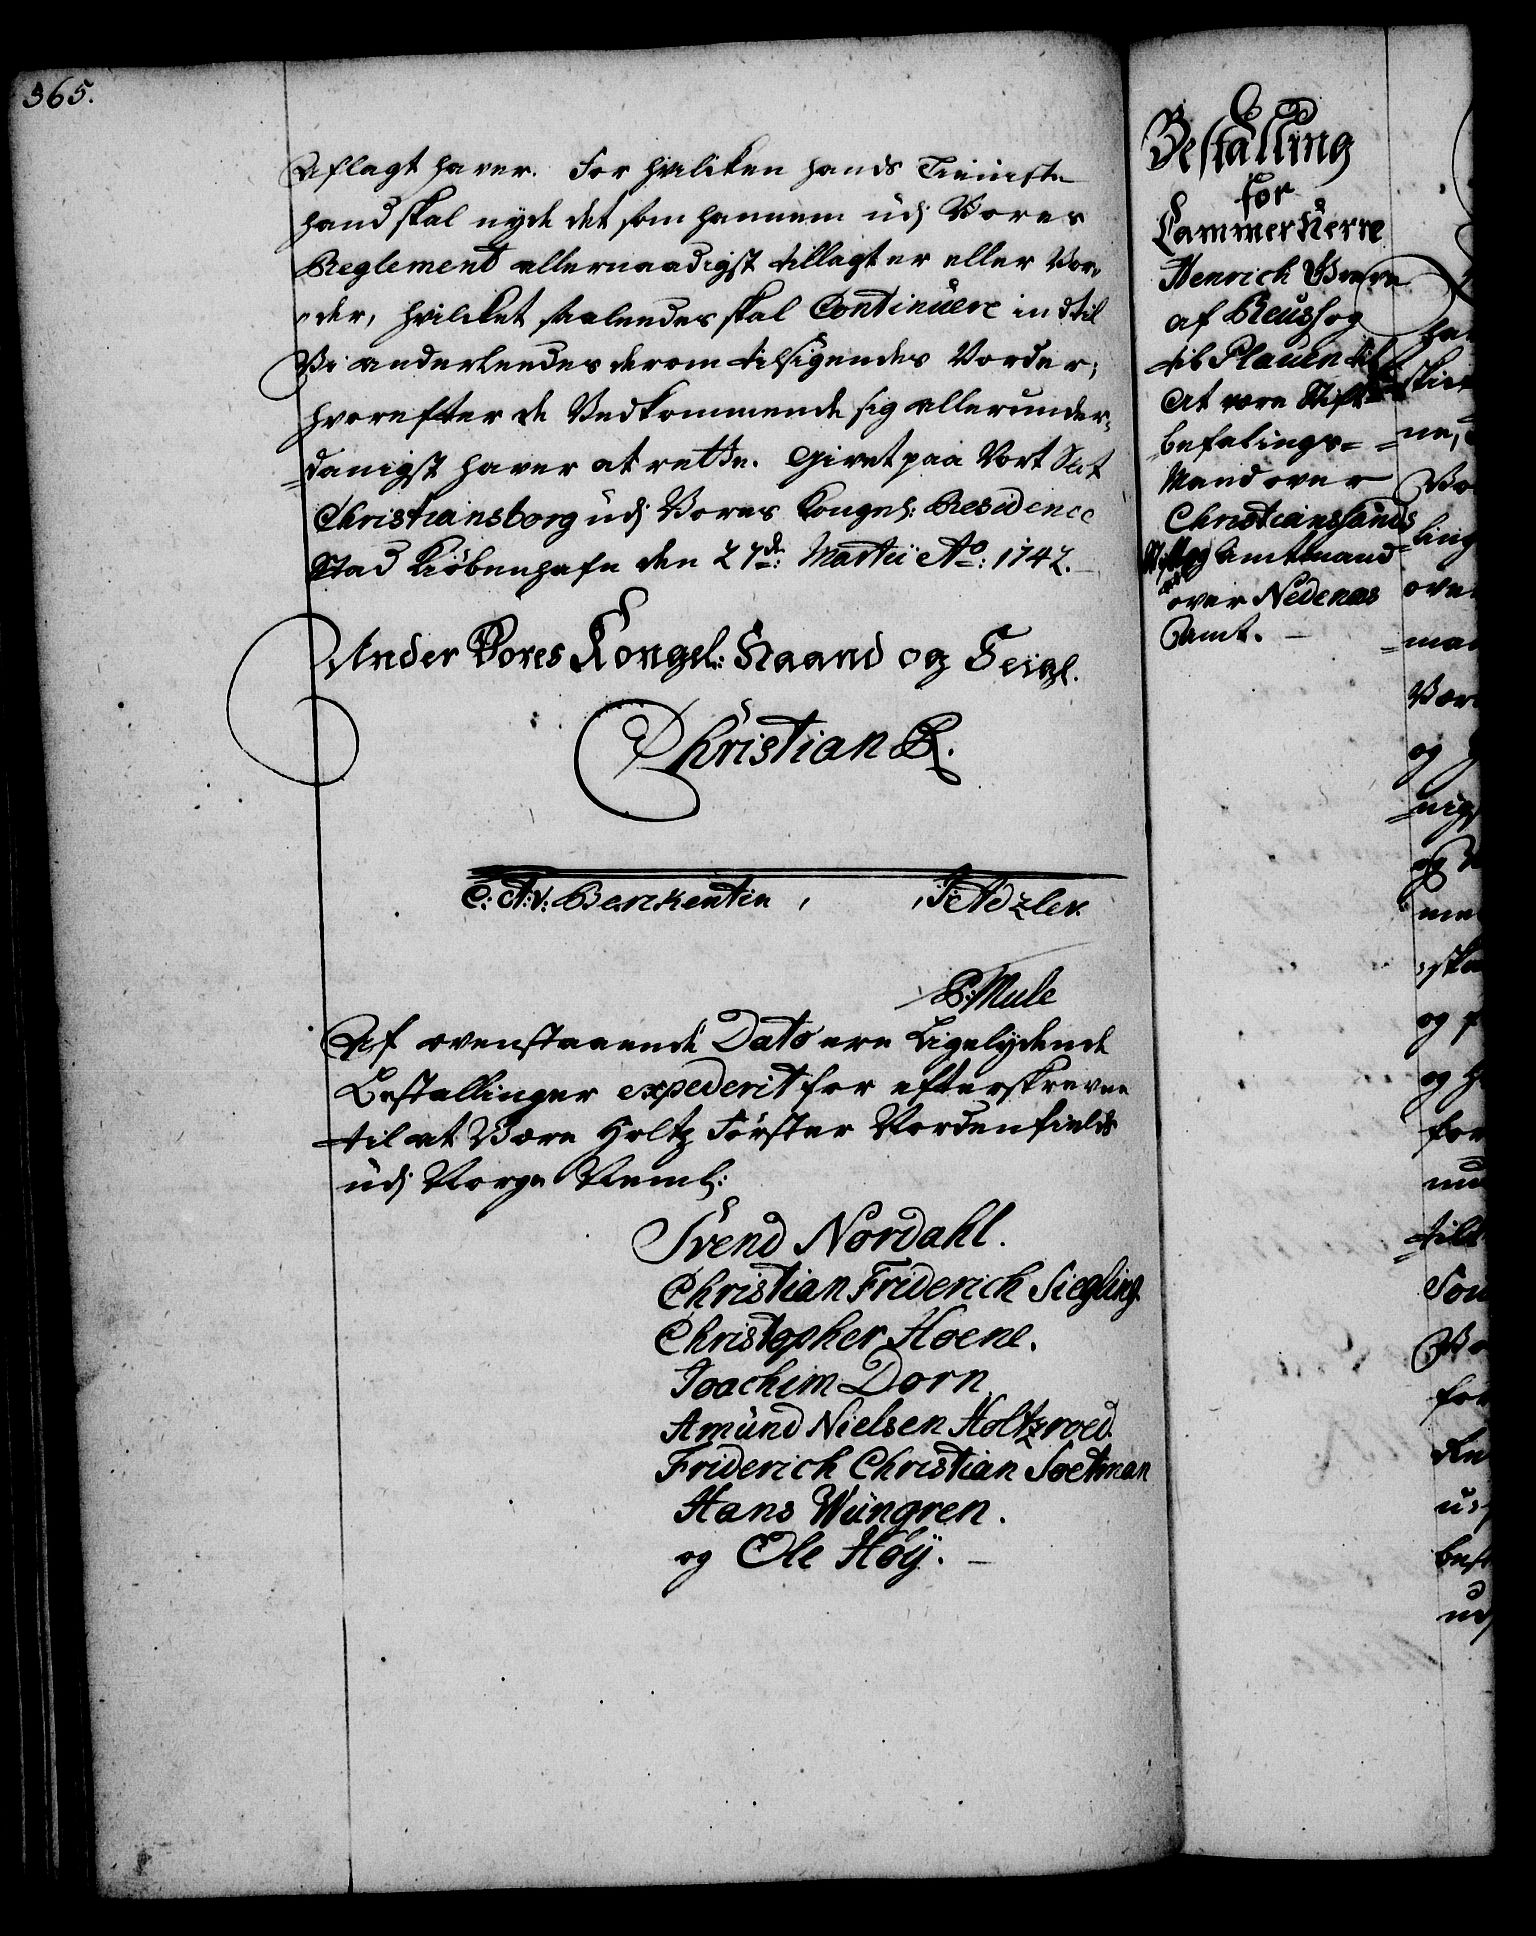 365.
Aflagt haver. For hvilcken hands Tienneste
hand skal nyde det som hannem udj Vores
Reglement allernaadigst tillagt er eller Vor-
der, hvilcket saaledes skal Continuere indtil
Vi anderleedes derom tilsigendes Vorder;
hvorefter de Vedkommende sig allerunder-
=danigst haver at rette. Givet paa Vort Slot
Christiansborg udj Vores Kongel: Residence
Stad Kiøbenhafn den 27de: Martii Ao: 1742.
Under Vores Kongel: Haand og Seigl.
Christian R.
C: A: v: Berckentin, J: Adzler.
P: Mule
Af ovenstaaende Dato ere Ligelydende
Bestallinger expederit for efterskrevne
til at Være Holtz Förster Nordenfields
udj Norge Neml:
Svend Nordahl.
Christian Friderich Siegling.
Christopher Hoene.
Joachim Dorn
Amund Nielsen Holtzroed.
Friderich Christian Soetman
Hans Wüngren.
og Ole Høÿ. -
Bestalling
for
CammerHerre
Henrich Greve
af Reuss og
til Plauen til
At være Stift
befalings=
Mand over
Christianssands
Stift og Amtmand
over Nedenæs
Amt. -
ne,
ling
over
man
Vær
og
nigst
og
men
og
og
for
tild
Son
for
udj